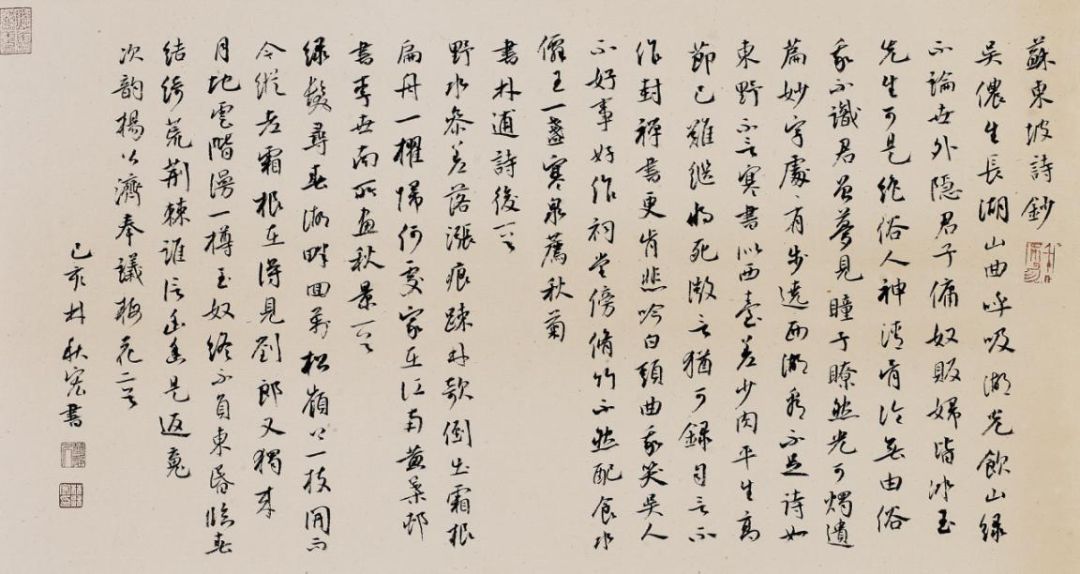 蘇東坡詩鈔
吳儂生長湖山曲呼吸湖光飲山綠
不論世外隱君子傭奴販婦皆冰玉
先生可是絕俗人神清骨冷無由俗
我不識君曾夢見瞳子瞭然光可燭遺
篇妙字處處有步遶西湖看不足詩如
東野不言寒書似西臺差少肉平生高
節已難繼將死微言猶可錄自言不
作封禪書更肯悲吟白頭曲我笑吳人
不好事好作祠堂傍脩竹不然配食水
僊王一盞寒泉薦秋菊
書林逋詩後一首
野水參差落漲痕疎林欹倒出霜根
扁舟一櫂歸何處家在江南黃葉邨
書李世南所畫秋景一首
綠髮尋春湖畔回萬松嶺上一枝開而
今縱老霜根在得見劉郎又獨來
月地雲階漫一樽玉奴終不負東昏臨春
結綺荒荊棘誰信幽香是返魂
次韵楊公濟奉議梅花二首
己亥林秋宏書